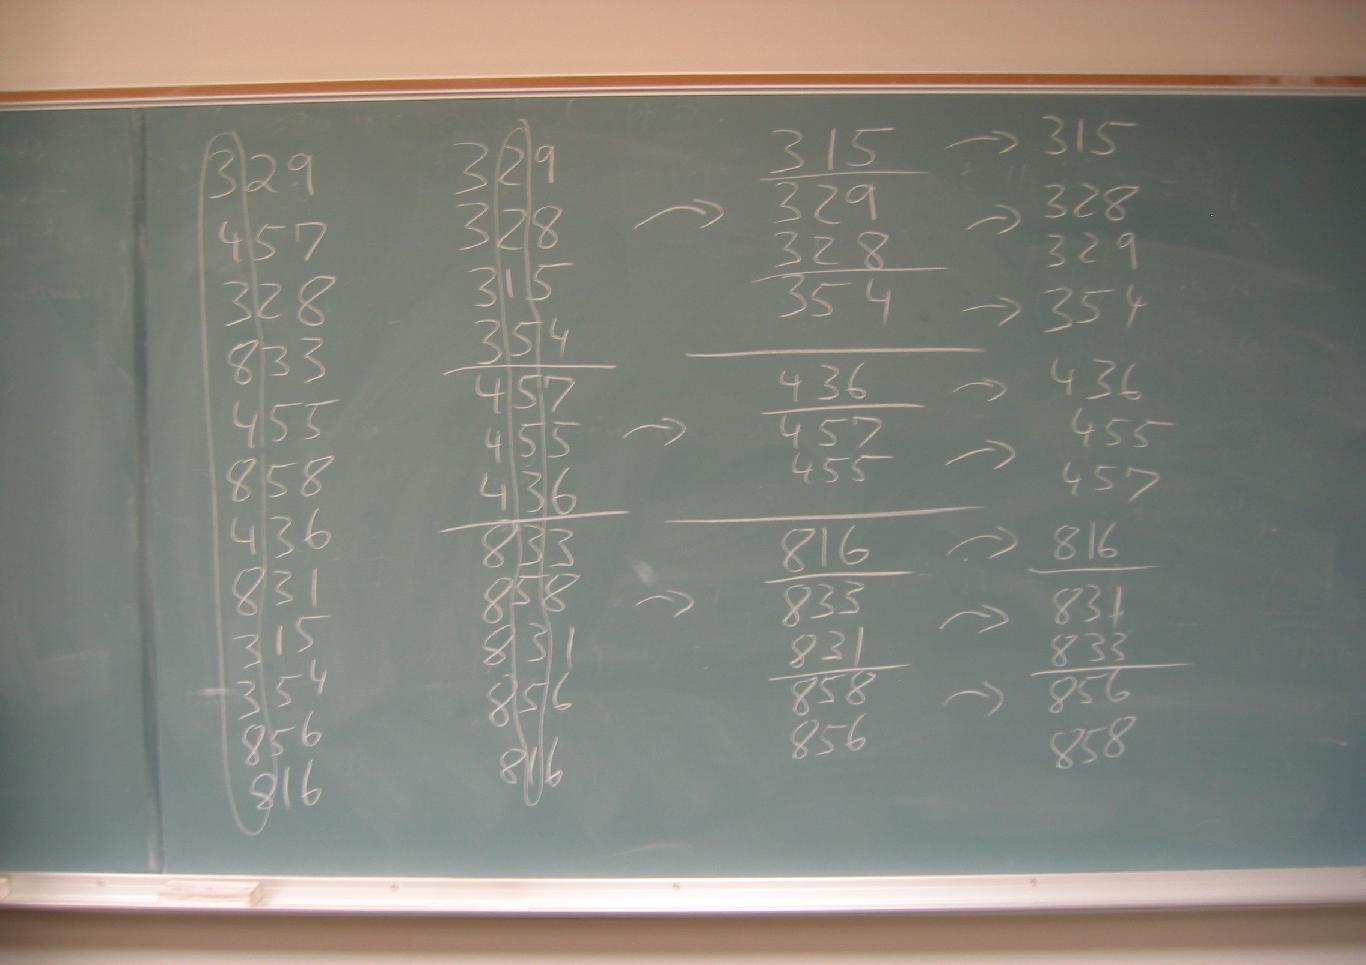 329
457
328
833
455
858
436
831
315
354
856
816
329
328
315
354
457
455
436
833
858
831
856
816
315
329
328
354
436
457
455
816
833
831
858
856
315
328
329
354
436
455
457
816
831
833
856
858